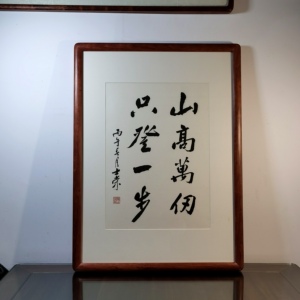 山高萬仞
只登一步
丙午三月